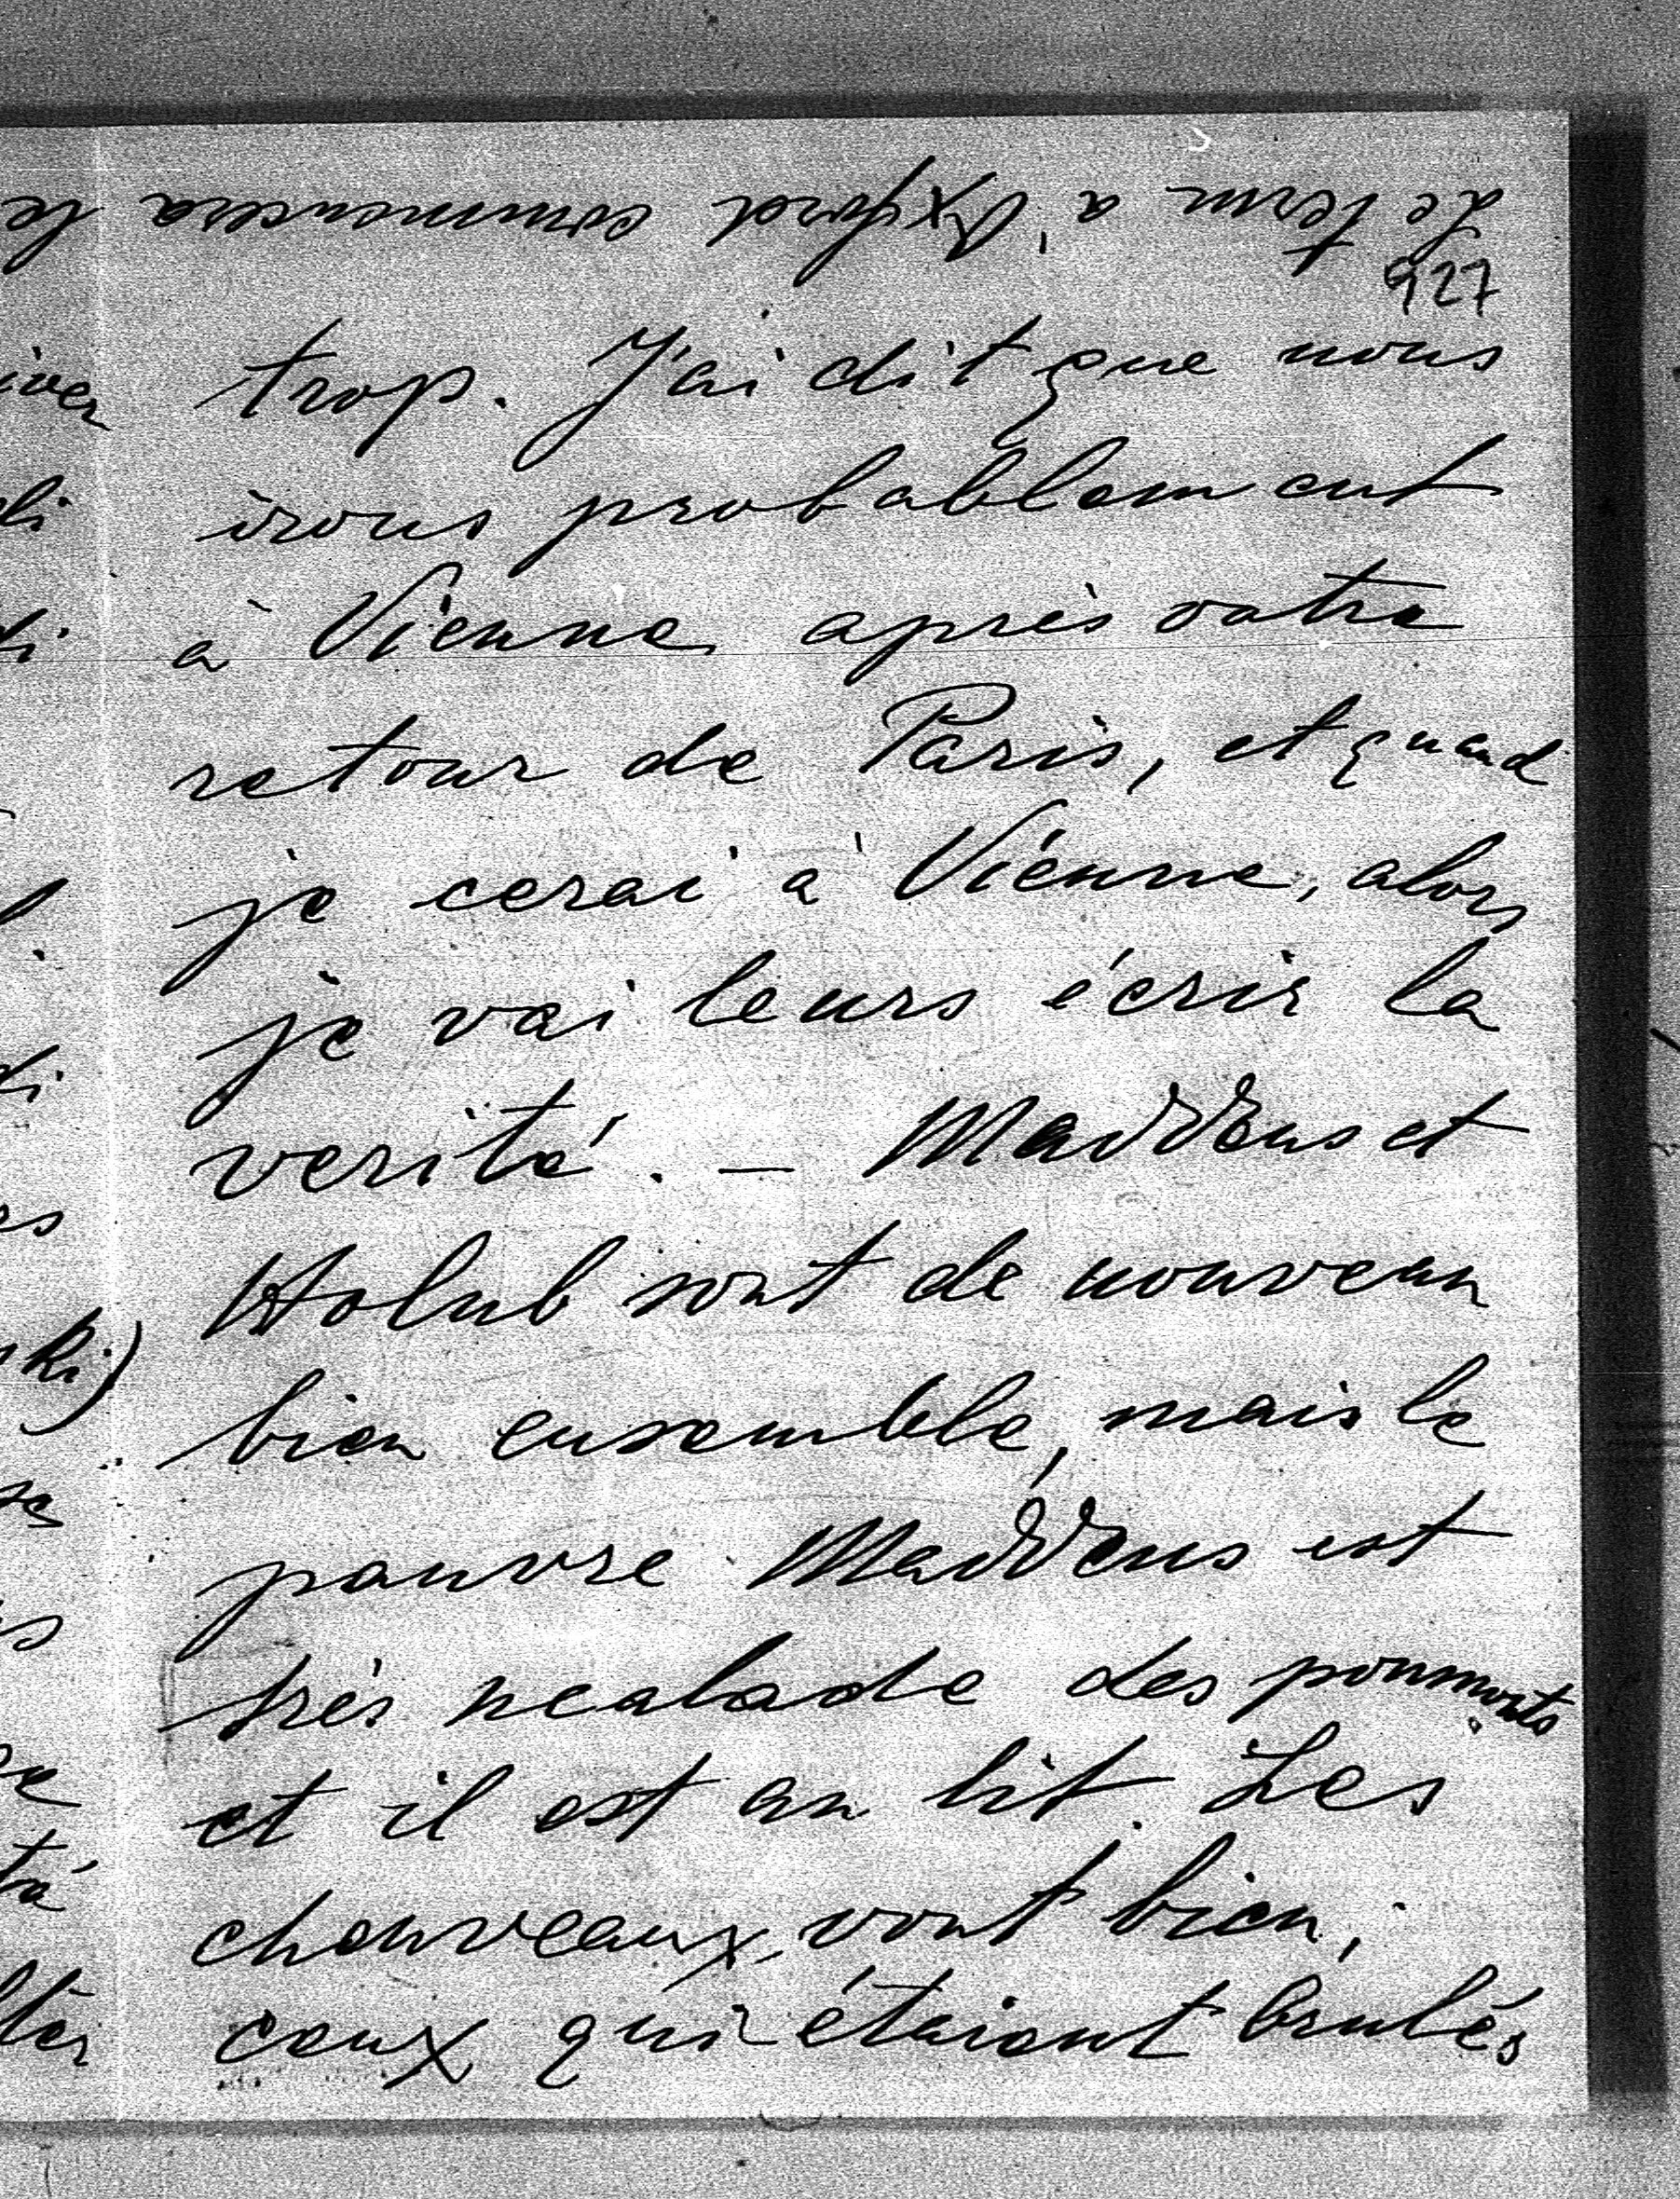 Le term a Oxford commencera le
927
trop. J'ai dit que nous
irons probablement
à Vienne après votre
retour de Paris, et quand
je cerai à Vienne, alors
je vai leurs écrir la
verité. — Maddens et
Holub sont de nouveau
bien ensemble, mais le
pauvre Maddens est
très malade des poumonts
et il est au lit. Les
chouveaux vont bien,
ceux qui étaient brulés